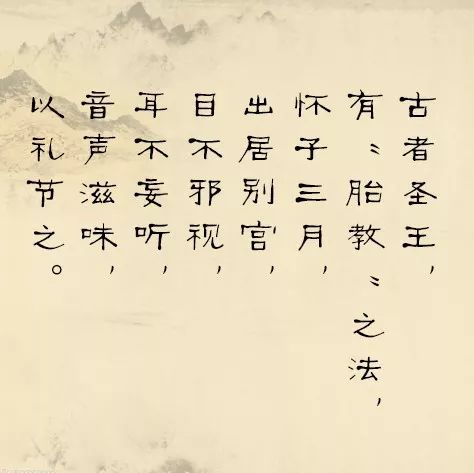 古者圣王，
有〝胎教〞之法，
怀子三月，
出居别宫，
目不邪视，
耳不妄听，
音声滋味，
以礼节之。